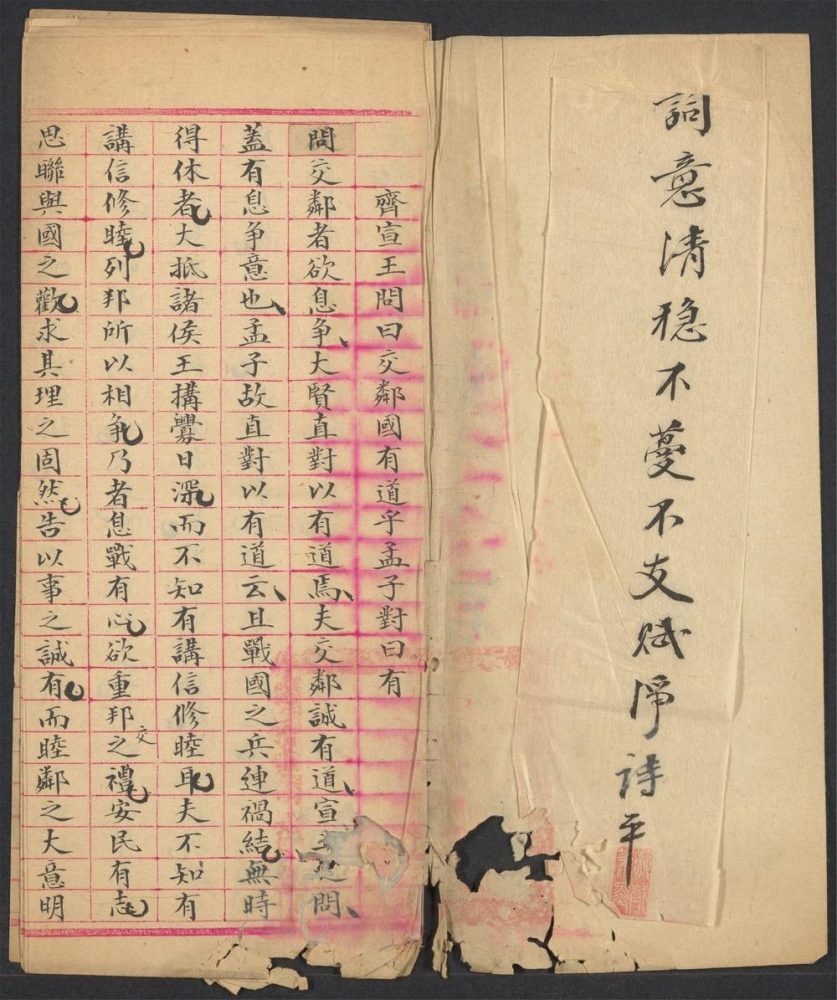 詞意清穩不蔓不支賦淨詩平
齊宣王問曰交鄰國有道乎孟子對曰有
問交鄰者欲息爭大賢直對以有道焉夫交鄰誠有道宣問
蓋有息爭意也孟子故直對以有道云且戰國之兵連禍結無時
得休者大抵諸侯王搆釁日深而不知有講信修睦耳夫不知有
講信修睦列邦所以相爭乃者息戰有心欲重邦交之禮安民有志
思聯與國之歡求其理之固然告以事之誠有而睦鄰之大意明